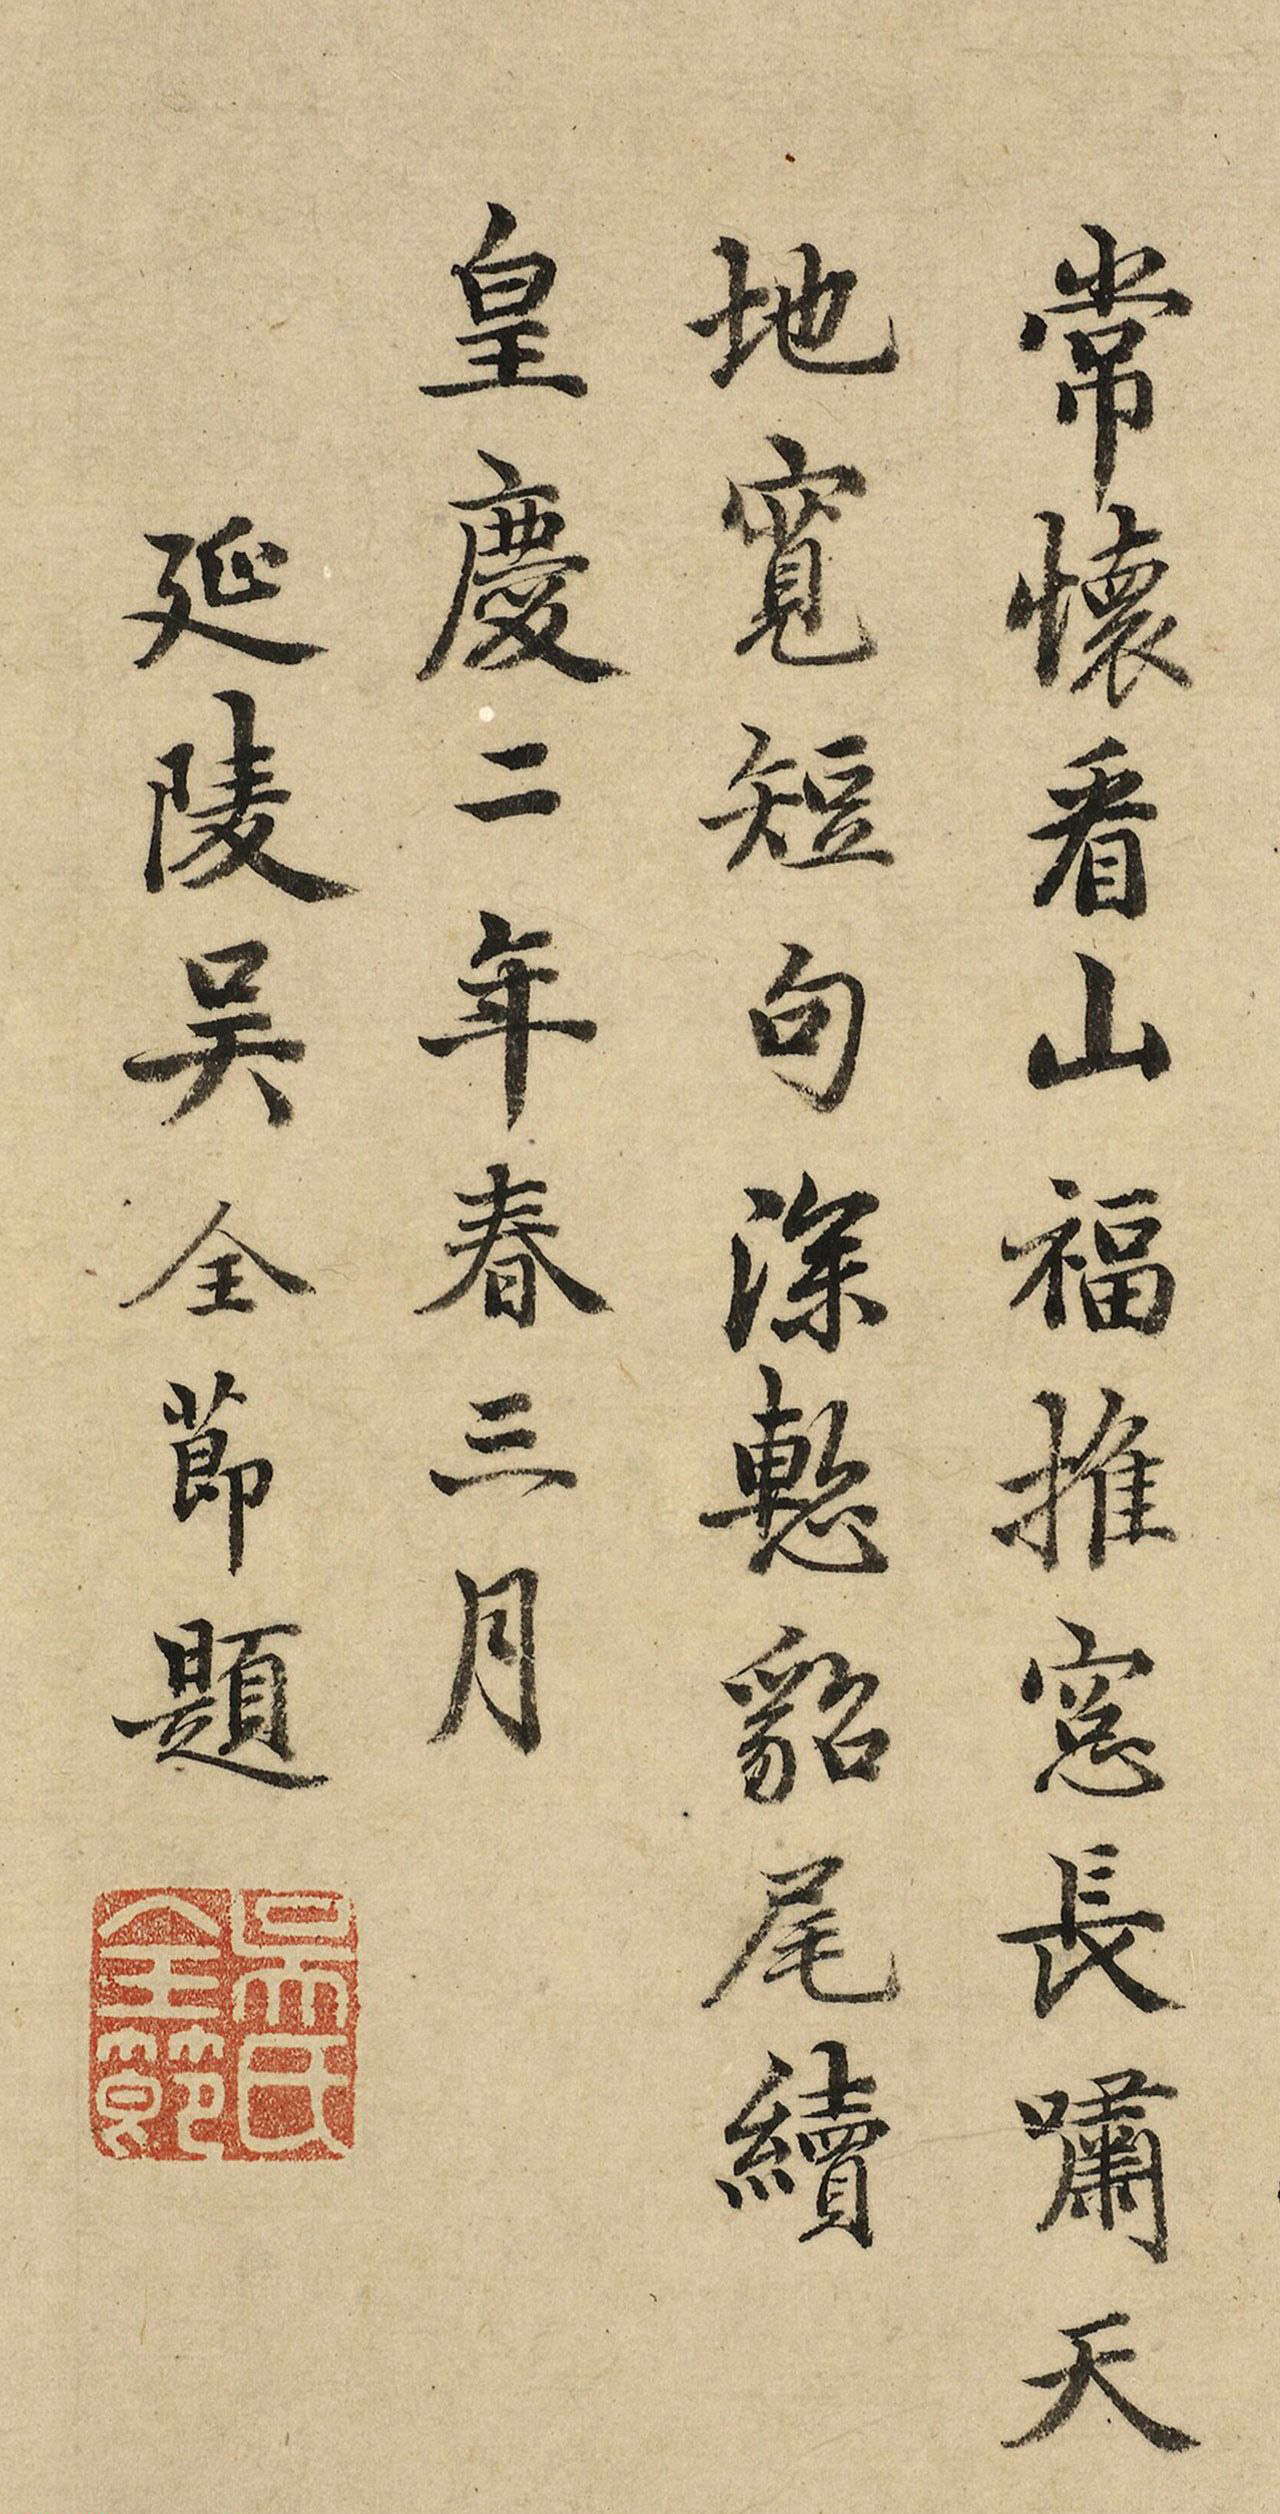 常懷看山福推窓長嘯天
地寬短句深慙貂尾續
皇慶二年春三月
延陵吴全節題
吳氏全節